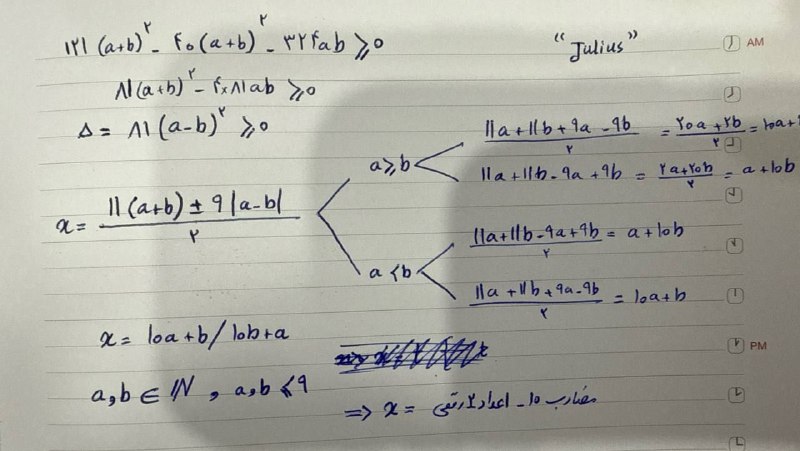 ۱۲۱(a+b)^۲ - ۴۰(a+b)^۲ - ۳۲۴ab ≥ ۰
"Julius"
AM
۸۱(a+b)^۲ - ۴×۸۱ab ≥ ۰
Δ = ۸۱(a-b)^۲ ≥ ۰
x = (۱۱(a+b) ± ۹|a-b|)/۲
a ≥ b
(۱۱a+۱۱b+۹a-۹b)/۲ = (۲۰a+۲b)/۲ = ۱۰a+
۱۱a+۱۱b-۹a+۹b = (۲a+۲۰b)/۲ = a+۱۰b
a < b
(۱۱a+۱۱b-۹a+۹b)/۲ = a+۱۰b
(۱۱a+۱۱b+۹a-۹b)/۲ = ۱۰a+b
x = ۱۰a+b / ۱۰b+a
PM
a, b ∈ ℕ , a, b ≤ ۹
⇒ x = اعداد ۲ رقمی - مضارب ۱۰